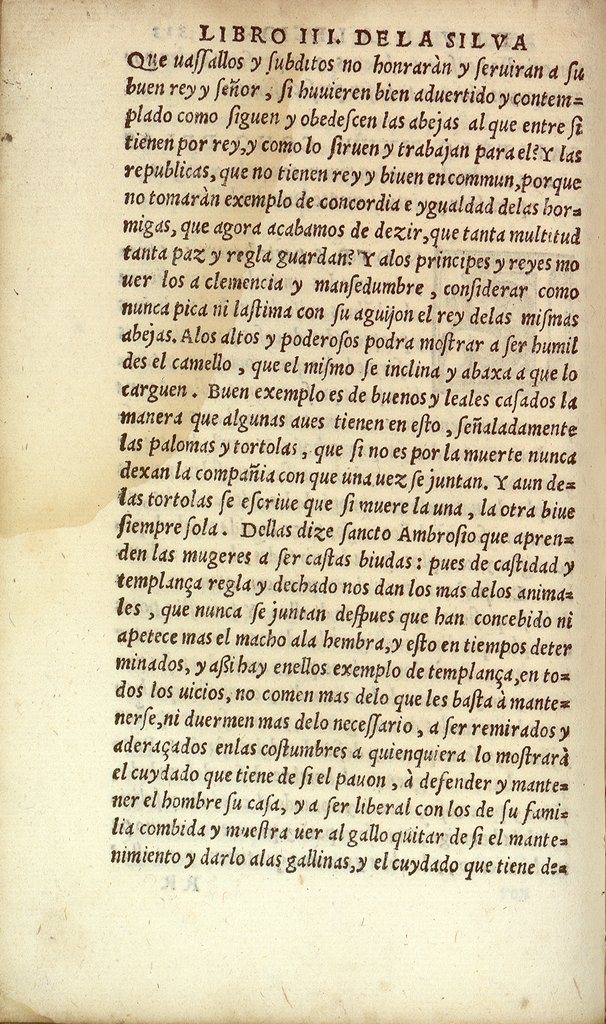 LIBRO III. DE LA SILVA
Que uaſſallos y ſubditos no honraràn y ſeruiran a ſu
buen rey y ſeñor, ſi huuieren bien aduertido y contem=
plado como ſiguen y obedeſcen las abejas al que entre ſi
tienen por rey, y como lo ſiruen y trabajan para el? Y las
republicas, que no tienen rey y biuen en commun, porque
no tomaràn exemplo de concordia e ygualdad delas hor=
migas, que agora acabamos de dezir, que tanta multitud
tanta paz y regla guardan? Y alos principes y reyes mo
uer los a clemencia y manſedumbre, conſiderar como
nunca pica ni laſtima con ſu aguijon el rey delas miſmas
abejas. Alos altos y poderoſos podra moſtrar a ſer humil
des el camello, que el miſmo ſe inclina y abaxa a que lo
carguen. Buen exemplo es de buenos y leales caſados la
manera que algunas aues tienen en eſto, ſeñaladamente
las palomas y tortolas, que ſi no es por la muerte nunca
dexan la compañia con que una uez ſe juntan. Y aun de=
las tortolas ſe eſcriue que ſi muere la una, la otra biue
ſiempre ſola. Dellas dize ſancto Ambroſio que apren=
den las mugeres a ſer caſtas biudas: pues de caſtidad y
templança regla y dechado nos dan los mas delos anima=
les, que nunca ſe juntan deſpues que han concebido ni
apetece mas el macho ala hembra, y eſto en tiempos deter
minados, y aßi hay enellos exemplo de templança, en to=
dos los uicios, no comen mas delo que les baſta à mante=
nerſe, ni duermen mas delo neceſſario, a ſer remirados y
aderaçados enlas coſtumbres a quienquiera lo moſtrarà
el cuydado que tiene de ſi el pauon, à defender y mante=
ner el hombre ſu caſa, y a ſer liberal con los de ſu fami=
lia combida y mueſtra uer al gallo quitar de ſi el mante=
nimiento y darlo alas gallinas, y el cuydado que tiene de=